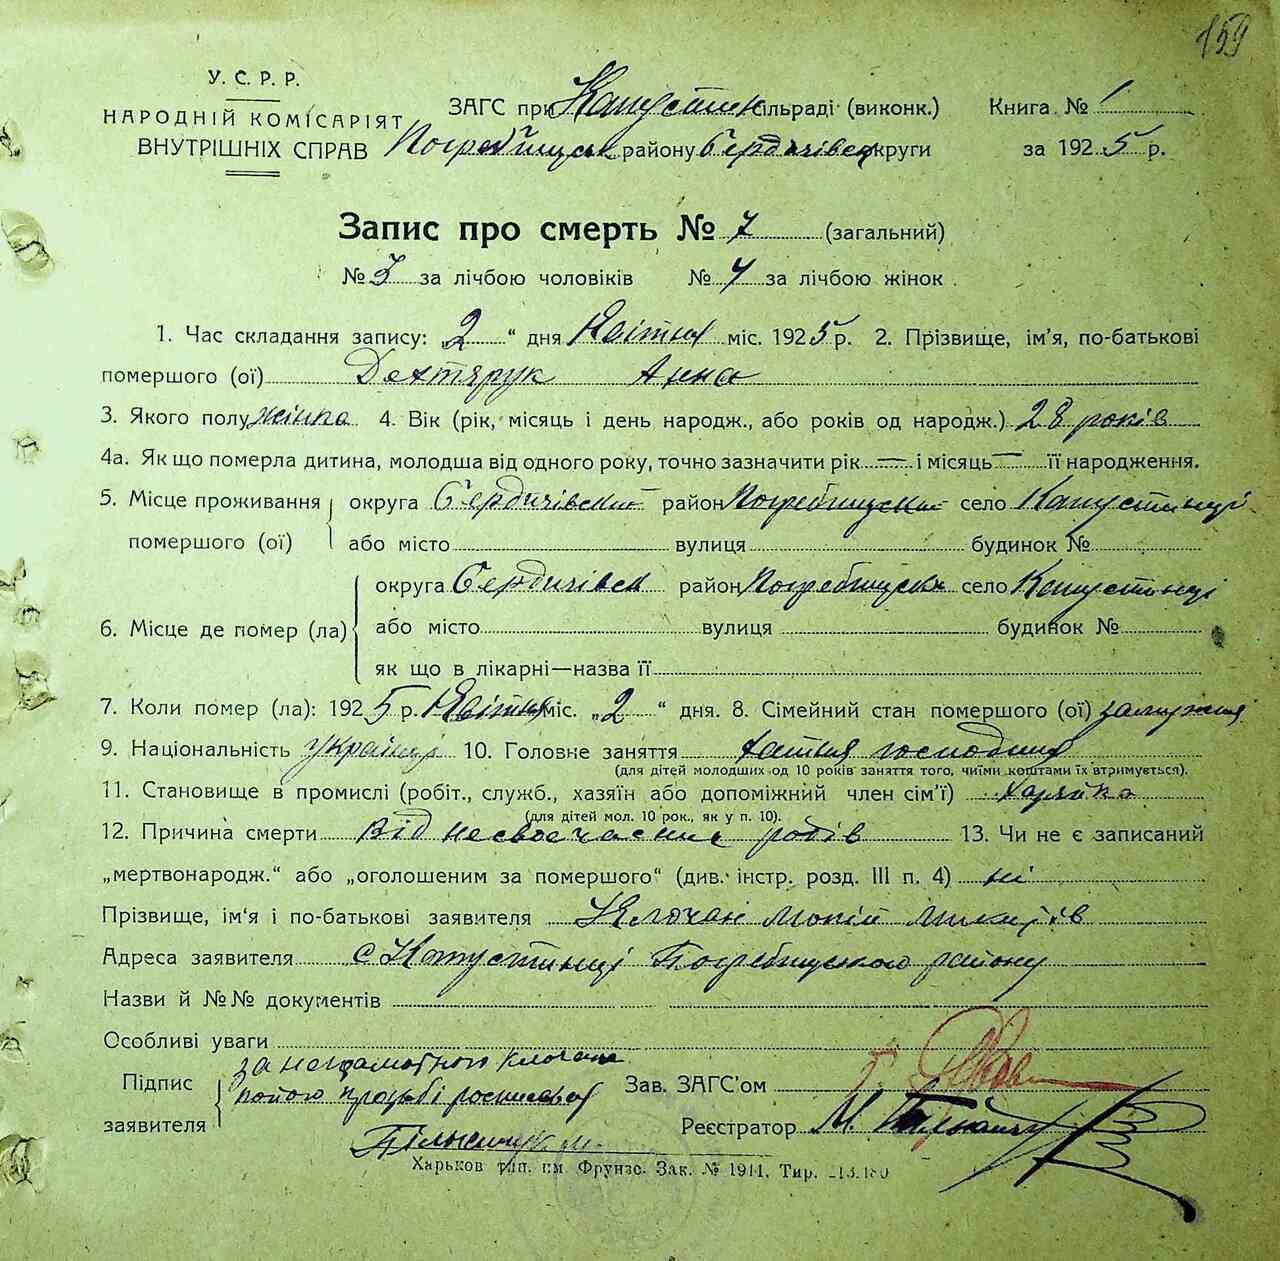 159
У. С. Р. Р.
НАРОДНІЙ КОМІСАРІЯТ
ВНУТРІШНІХ СПРАВ
ЗАГС при Капустин сільраді (виконк.) Книга № 1
Погребищуськ району Бердичівськ округи за 1925 р.
Запис про смерть № 7 (загальний)
№ 3 за лічбою чоловіків № 4 за лічбою жінок
1. Час складання запису: „2“ дня Квітня міс. 1925 р. 2. Прізвище, ім'я, по-батькові
помершого (ої) Дехтярук Анна
3. Якого полу жінка 4. Вік (рік, місяць і день народж., або років од народж.) 28 років
4а. Як що померла дитина, молодша від одного року, точно зазначити рік — і місяць — її народження.
5. Місце проживання помершого (ої) округа Бердичівськ район Погребищуськ село Капустинці
або місто вулиця будинок №
6. Місце де помер (ла) округа Бердичівськ район Погребищуськ село Капустинці
або місто вулиця будинок №
як що в лікарні—назва її
7. Коли помер (ла): 1925 р. Квітня міс. „2“ дня. 8. Сімейний стан помершого (ої) замужня
9. Національність українці 10. Головне заняття хатня господиня
(для дітей молодших од 10 років заняття того, чиїми коштами їх втримується).
11. Становище в промислі (робіт., служб., хазяїн або допоміжний член сім'ї)
(для дітей мол. 10 рок., як у п. 10).
12. Причина смерти від несвоєчасних родів 13. Чи не є записаний
„мертвонародж.“ або „оголошеним за помершого“ (див. інстр. розд. III п. 4) ні
Прізвище, ім'я і по-батькові заявителя Клочан
Адреса заявителя с Капустинці Погребищуського району
Назви й №№ документів
Особливі уваги
Підпис заявителя за неграмотного Клочана
Зав. ЗАГС'ом
Реєстратор М.
Харьков тип. им. Фрунзе. Зак. № 1911. Тир.